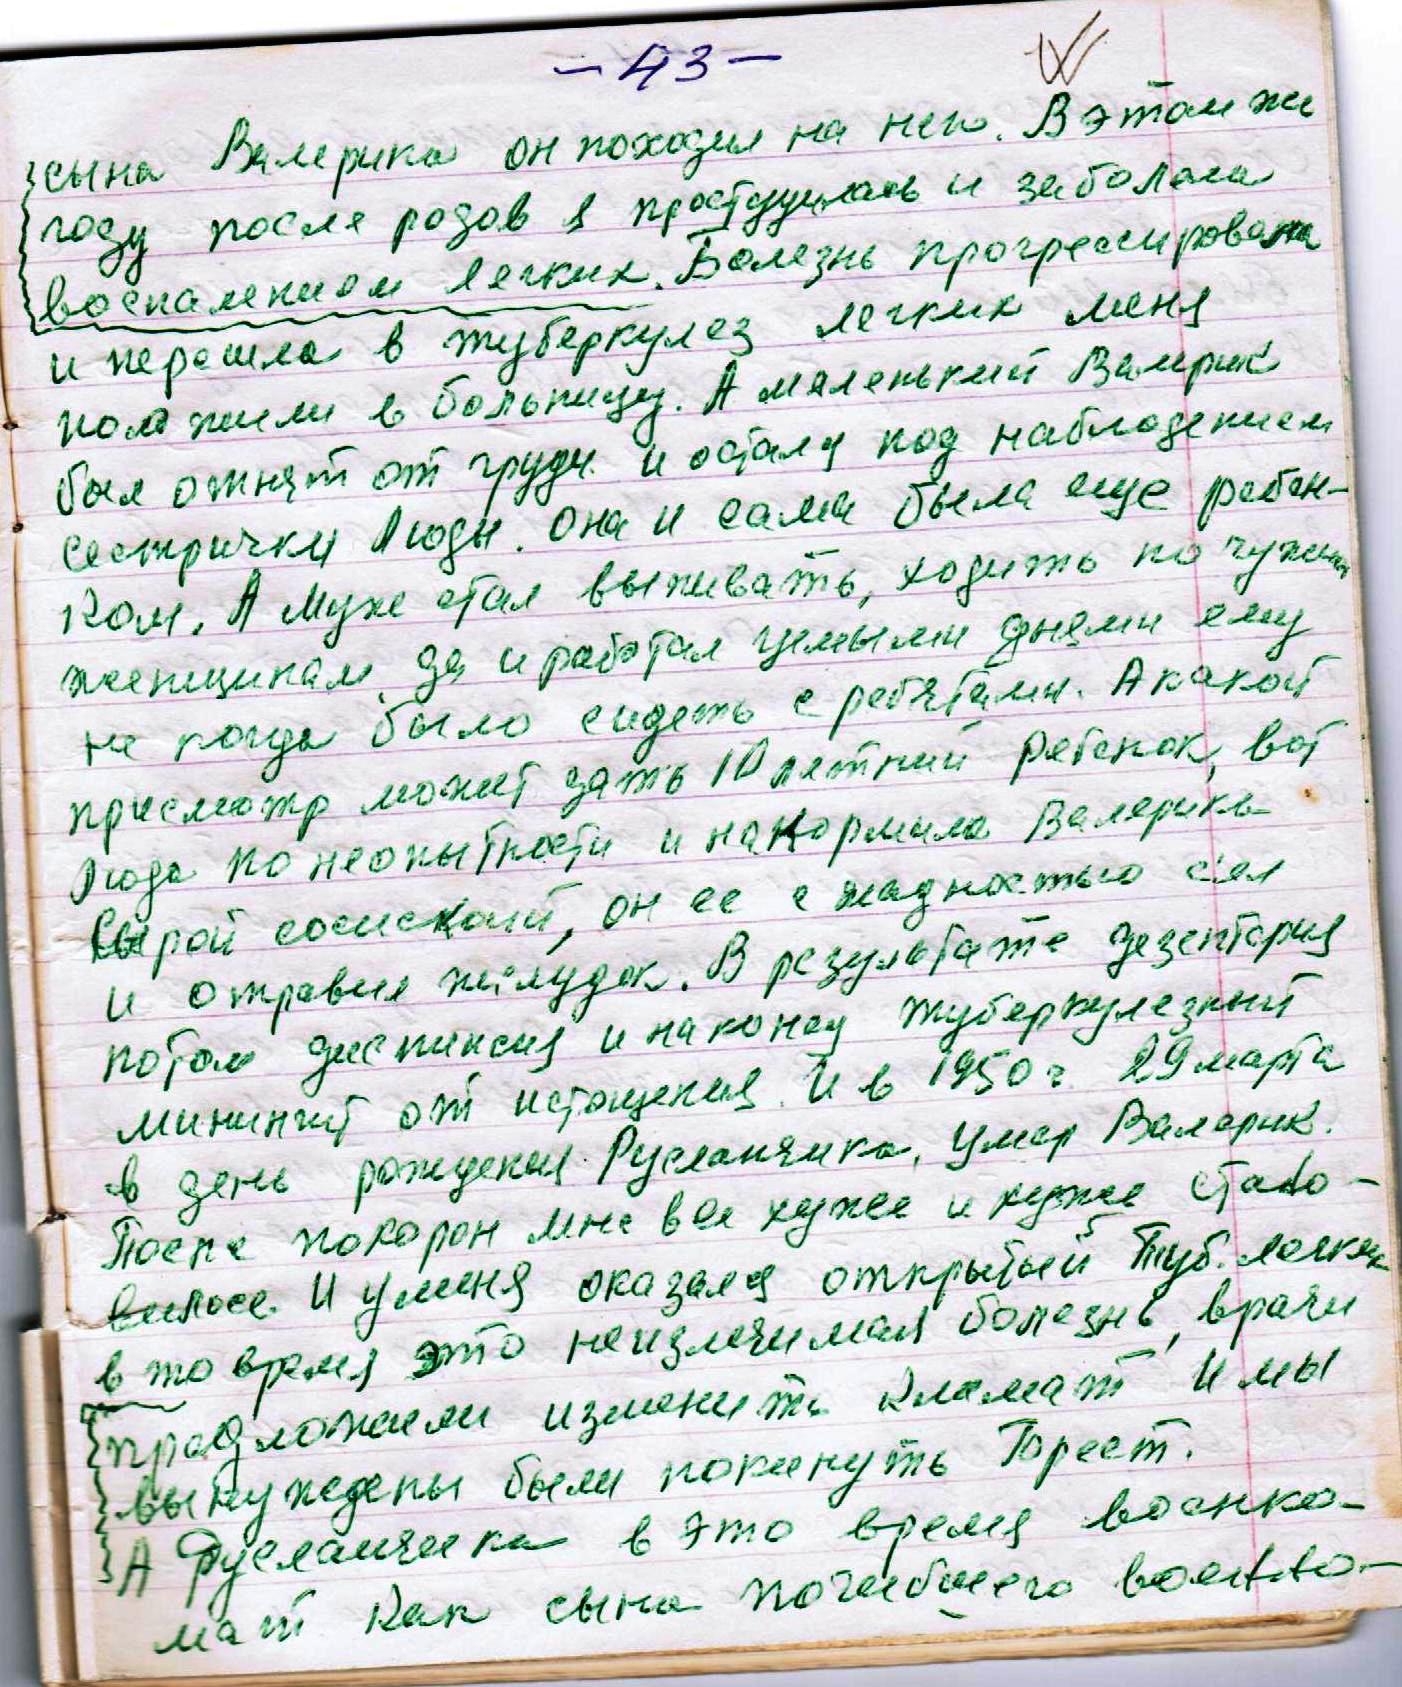 - 43 -
сына Валерика он походил на него. В этом же
году после родов я простудилась и заболела
воспалением легких. Болезнь прогрессировала
и перешла в туберкулез легких меня
положили в больницу. А маленький Валерик
был отнят от груди и остался под наблюдением
сестрички Люды. Она и сама была еще ребен-
ком. А муж стал выпивать, ходить по чужим
женщинам да и работал целыми днями ему
не когда было сидеть с ребятами. А какой
присмотр может дать 10 летний ребенок, вот
Люда по неопытности и накормила Валерика
сырой сосиской, он ее с жадностью съел
и отравил желудок. В результате дезентария
потом диспепсия и наконец туберкулезный
минингит от истощения. И в 1950 г 29 марта
в день рождения Русланчика, умер Валерик.
После похорон мне все хуже и хуже стано-
вилось. И у меня оказался открытый туб. легких
в то время это неизлечимая болезнь, врачи
предложили изменить климат И мы
вынуждены были покинуть
А Русланчика в это время военко-
мат как сына погибшего